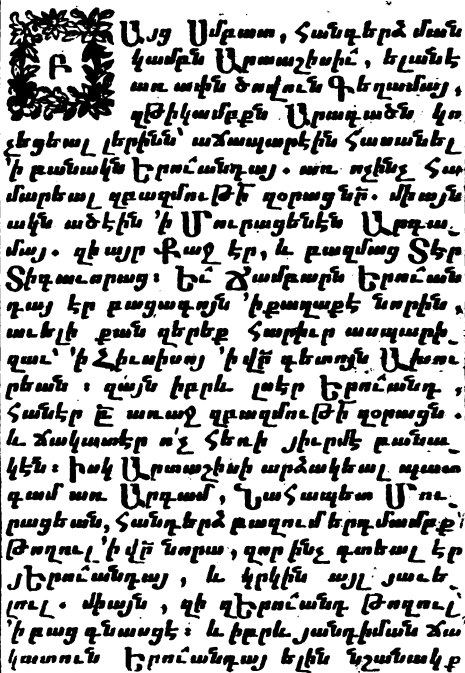 Բ
Այլ Սմբատ, հանդերձ ման
կամբն Արտաշիսիւ̂, ելանէ
առ ափն ծովուն Գեղամայ,
զթիկամբքն Արագածն կո
չեցեալ լերինն՝ աճապարէին հասանել
՚ի բանակն Երուանդայ. առ ոչինչ հա
մարեալ զբազմութի՟ զօրացն նր՟. միայն
ակն ածէին ՚ի Մուրացենէն Արգա_
մայ. զի այր Քաջ էր, և բազմաց Տէր
Տիգաւորաց։ Եւ̂ Ճամբարն Երուան
դայ էր բացագոյն ՚ի քաղաքէ նորին,
աւելի քան զերեք հարիւր ասպարի_
զաւ՝ ՚ի Հիւսիսոյ ՚ի վր՟ գետոյն Ախու
րեան ։ զայն իբրև լուէր Երուանդ,
հանէր ը՟ առաջ զբազմութի՟ զօրացն.
և ճակատէր ո՛չ հեռի յիւրմէ բանա_
կէն։ Իսկ Արտաշիսի արձակեալ պատ
գամ առ Արգամ, Նահապետ Մու_
րացեան, հանդերձ բազում երդմամբք՝
Թողուլ ՚ի վր՟ նորա, զոր ինչ գտեալ էր
յԵրուանդայ, և կրկին այլ յաւե_
լուլ. միայն, զի զԵրուանդ Թողուլ՝
՚ի բաց գնասցէ։ և իբրև յանդիման ճա
կատուն Երուանդայ ելին նշանակք